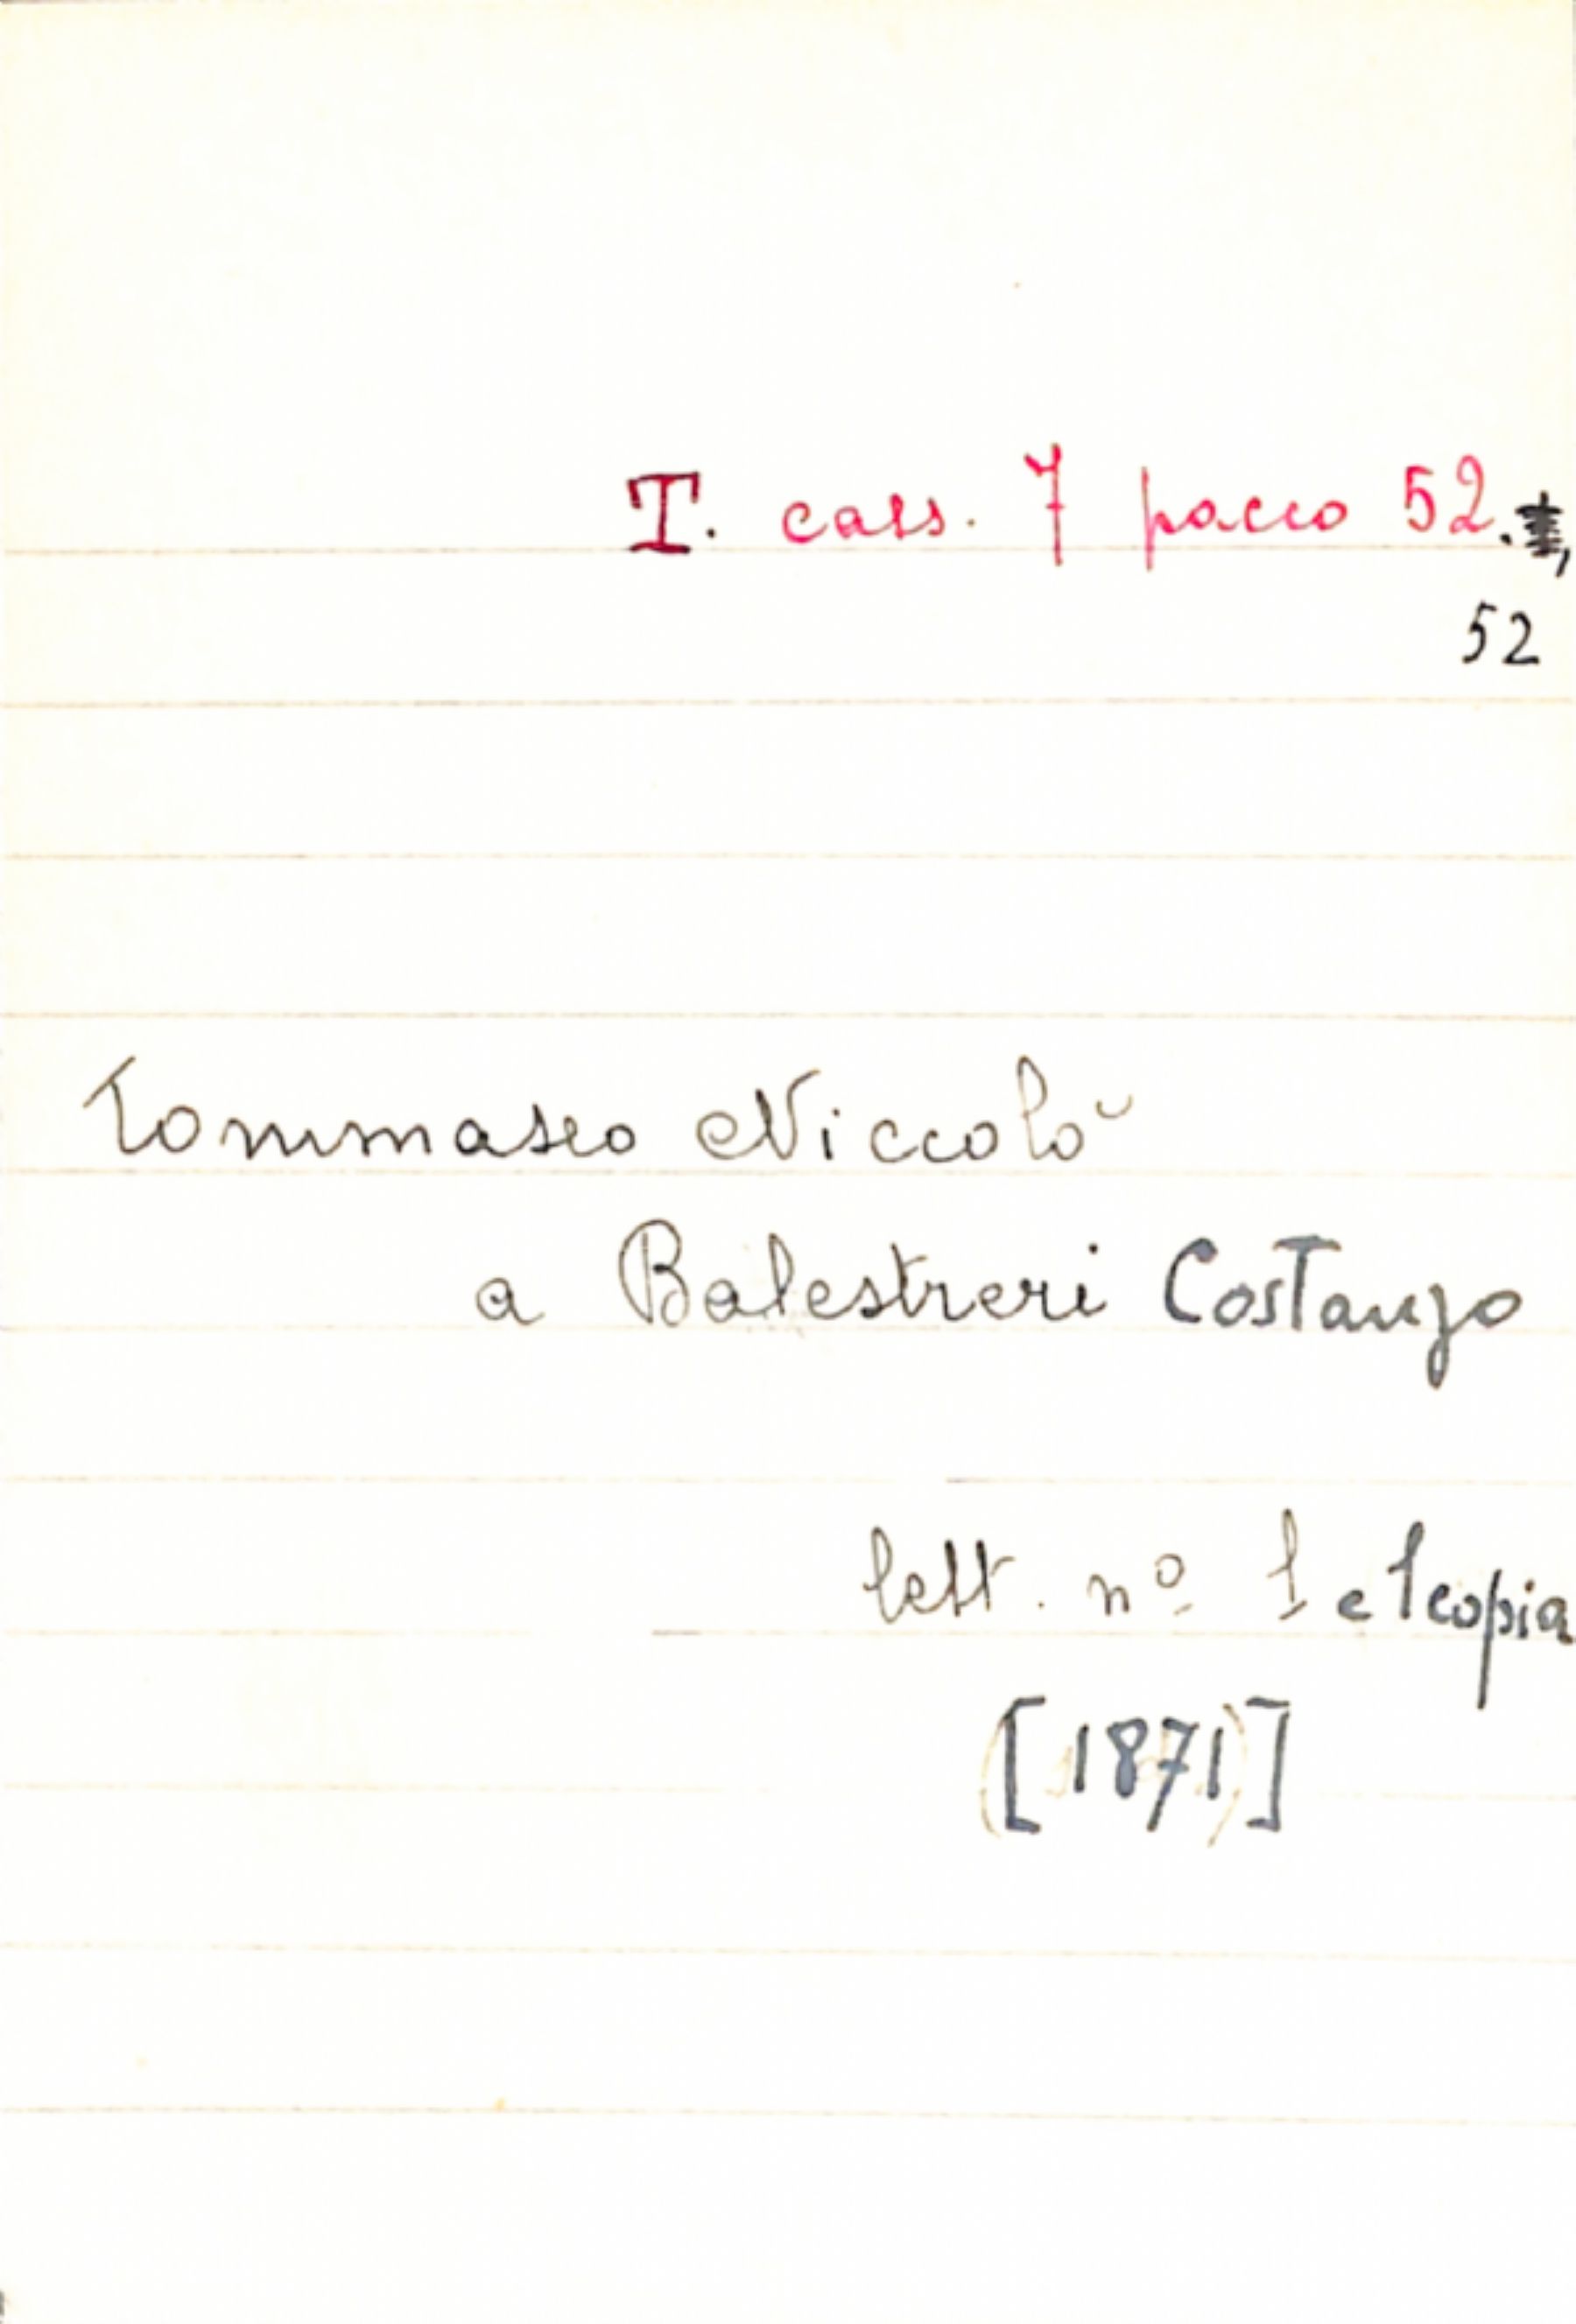 T. cass. 7 pacco 52.
52
Tommaseo Niccolò
a Balestreri Costanzo
lett. nº 1 e 1 copia
[1871]